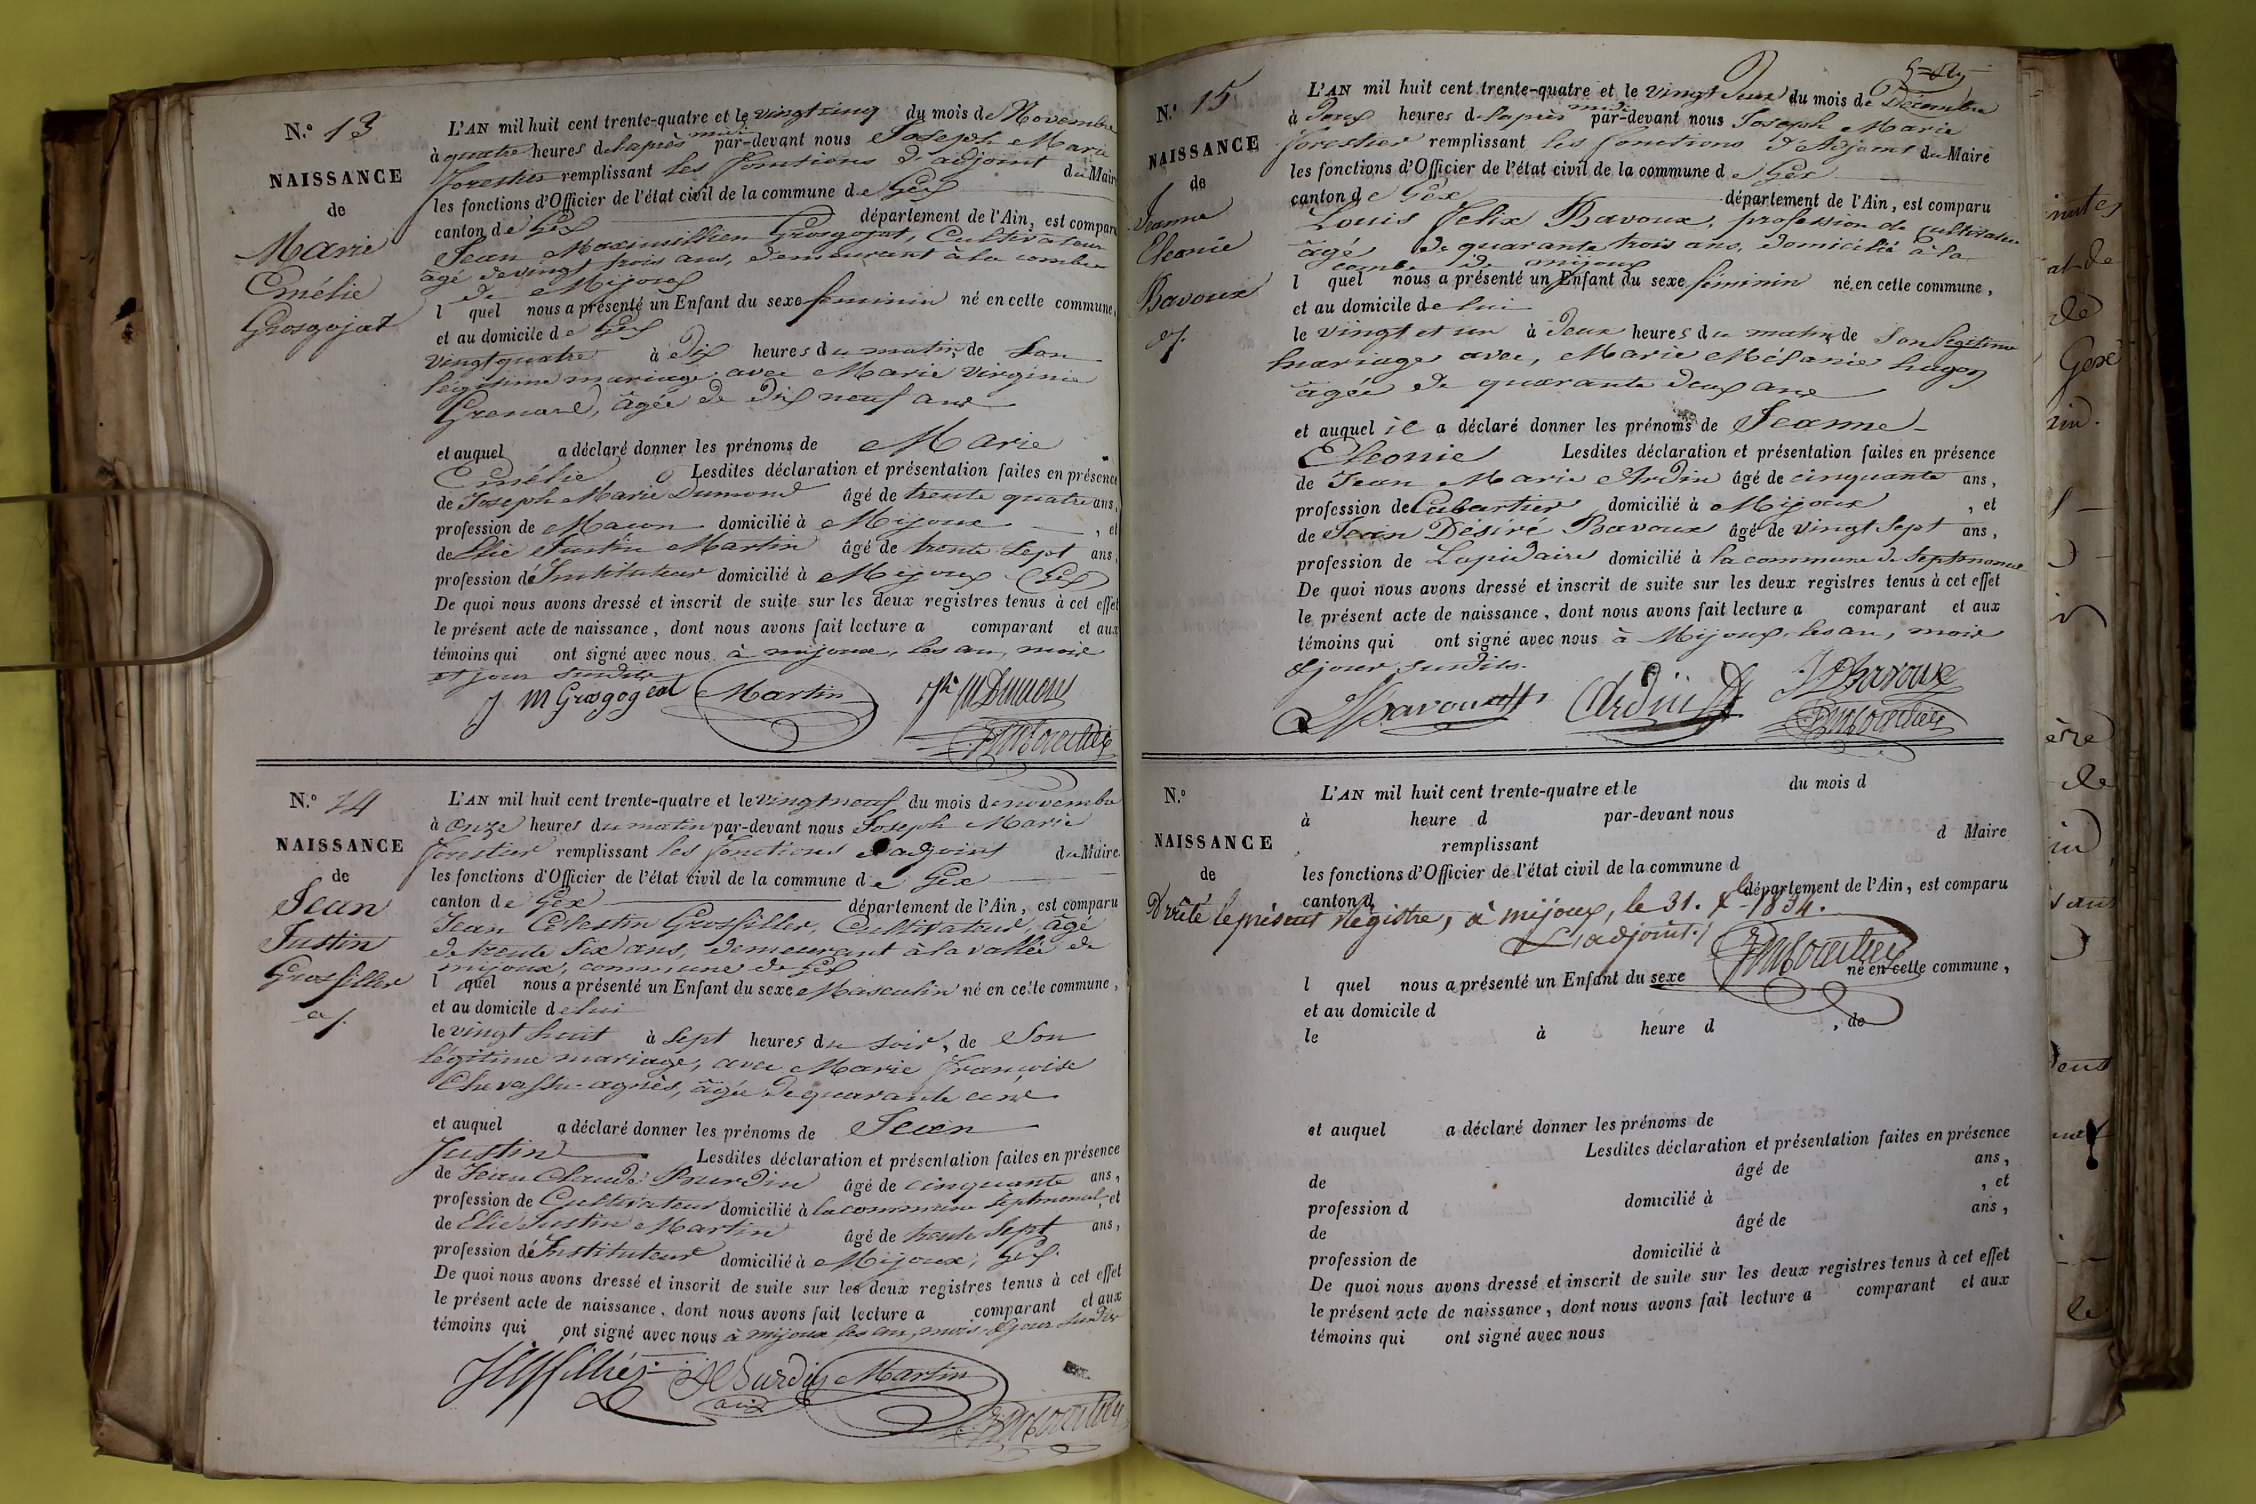 N.° 13
NAISSANCE
de
Marie
Emélie
Grosgojat
L'AN mil huit cent trente-quatre et le vingt cinq du mois de Novembre
à quatre heures de l'après midi par-devant nous Joseph Marie
forestier remplissant les fonctions d'adjoint du Maire
les fonctions d'Officier de l'état civil de la commune de Gex
canton de Gex département de l'Ain, est comparu
Jean Maximillien Grosgojat, Cultivateur
âgé de vingt trois ans, demeurant à la combe
de Mijoux
l quel nous a présenté un Enfant du sexe feminin né en cette commune,
et au domicile de Gex
vingt quatre à dix heures du matin, de son
légitime mariage avec Marie Virginie
Grenard, âgée de dix neuf ans
et auquel a déclaré donner les prénoms de Marie
Emélie Lesdites déclaration et présentation faites en présence
de Joseph Marie Dumond âgé de trente quatre ans,
profession de Macon domicilié à Mijoux , et
de Elie Justin Martin âgé de trente sept ans,
profession d'Instituteur domicilié à Mijoux Gex
De quoi nous avons dressé et inscrit de suite sur les deux registres tenus à cet effet
le présent acte de naissance, dont nous avons fait lecture a comparant et aux
témoins qui ont signé avec nous à mijoux, les an, mois
et jour susdits
J M Grosgogeat Martin Jh M Dumond
JM Forestier
N.° 14
NAISSANCE
de
Jean
Justin
Grosfiller
L'AN mil huit cent trente-quatre et le vingt neuf du mois de novembre
à onze heures du matin par-devant nous Joseph Marie
forestier remplissant les fonctions d'adjoint du Maire
les fonctions d'Officier de l'état civil de la commune de Gex
canton de Gex département de l'Ain, est comparu
Jean Célestin Grosfiller, Cultivateur, âgé
de trente six ans, demeurant à la vallée de
mijoux, commune de Gex
l quel nous a présenté un Enfant du sexe Masculin né en cette commune,
et au domicile de lui
le vingt huit à sept heures du soir, de son
légitime mariage, avec Marie françoise
Chevassu-agnès, âgée de quarante ans
et auquel a déclaré donner les prénoms de Jean
Justin Lesdites déclaration et présentation faites en présence
de Jean Claude Burdin âgé de cinquante ans,
profession de Cultivateur domicilié à la commune Septmoncel, et
de Elie Justin Martin âgé de trente sept ans,
profession d'Instituteur domicilié à Mijoux, Gex
De quoi nous avons dressé et inscrit de suite sur les deux registres tenus à cet effet
le présent acte de naissance, dont nous avons fait lecture a comparant et aux
témoins qui ont signé avec nous à mijoux les an, mois & jour susdits
Burdin Martin
JM Forestier
N.° 15
NAISSANCE
de
Jeanne
Eleonie
Bavoux
L'AN mil huit cent trente-quatre et le vingt deux du mois de Décembre
à deux heures de l'après midi par-devant nous Joseph Marie
forestier remplissant les fonctions d'Adjoint du Maire
les fonctions d'Officier de l'état civil de la commune de Gex
canton de Gex département de l'Ain, est comparu
Louis Felix Bavoux, profession de cultivateur
âgé de quarante trois ans, domicilié à la
combe de mijoux
l quel nous a présenté un Enfant du sexe féminin né en cette commune,
et au domicile de lui
le vingt et un à deux heures du matin, de son légitime
mariage avec, Marie Mélanie hugon
âgée de quarante deux ans
et auquel il a déclaré donner les prénoms de Jeanne
Eleonie Lesdites déclaration et présentation faites en présence
de Jean Marie Ardin âgé de cinquante ans,
profession de Cabartier domicilié à Mijoux , et
de Jean Désiré Bavoux âgé de vingt Sept ans,
profession de Lapidaire domicilié à la commune de Septmoncel
De quoi nous avons dressé et inscrit de suite sur les deux registres tenus à cet effet
le présent acte de naissance, dont nous avons fait lecture a comparant et aux
témoins qui ont signé avec nous à Mijoux, les an, mois
& jour susdits.
Bavoux Ardin JD Bavoux
JM Forestier
N.°
NAISSANCE
de
L'AN mil huit cent trente-quatre et le du mois d
à heure d par-devant nous
remplissant d Maire
les fonctions d'Officier de l'état civil de la commune d
canton d département de l'Ain, est comparu
Arrêté le présent Registre, à mijoux, le 31. Xbre 1834.
L'adjoint. JM Forestier
l quel nous a présenté un Enfant du sexe né en cette commune,
et au domicile d
le à heure d , de
et auquel a déclaré donner les prénoms de
Lesdites déclaration et présentation faites en présence
de âgé de ans,
profession d domicilié à , et
de âgé de ans,
profession de domicilié à
De quoi nous avons dressé et inscrit de suite sur les deux registres tenus à cet effet
le présent acte de naissance, dont nous avons fait lecture a comparant et aux
témoins qui ont signé avec nous